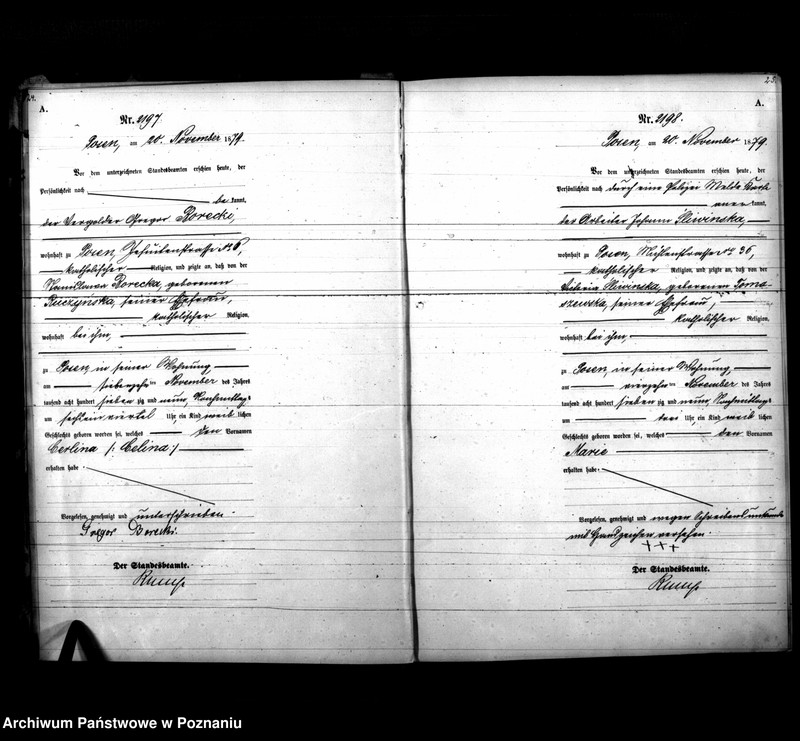 24.
A.
Nr. 2197
Posen, am 20. November 1879.
Vor dem unterzeichneten Standesbeamten erschien heute, der
Persönlichkeit nach
be kannt,
der Vergolder Gregor Borecki,
wohnhaft zu Posen, Jesuitenstrasse No 6,
katholischer Religion, und zeigte an, daß von der
Borecka, geborenen
Ruczynska, seiner Ehefrau,
katholischer Religion,
wohnhaft bei ihm,
zu Posen, in seiner Wohnung,
am siebzehnten November des Jahres
tausend acht hundert sieben zig und neun, Nachmittags
um viertel Uhr, ein Kind weib lichen
Geschlechts geboren worden sei, welches den Vornamen
Cerlina /: Celina :/
erhalten habe.
Vorgelesen, genehmigt und unterschrieben.
Gregor Borecki.
Der Standesbeamte.
25.
A.
Nr. 2198.
Posen, am 20. November 1879.
Vor dem unterzeichneten Standesbeamten erschien heute, der
Persönlichkeit nach durch eine Polizei Melde Karte
aner kannt,
der Arbeiter Johann Sliwinska,
wohnhaft zu Posen, Mühlenstrasse No 36,
katholischer Religion, und zeigte an, daß von der
Sliwinska, geborenen Toma-
szewska, seiner Ehefrau,
katholischer Religion,
wohnhaft bei ihm,
zu Posen, in seiner Wohnung,
am vierzehnten November des Jahres
tausend acht hundert sieben zig und neun, Nachmittags
um drei Uhr, ein Kind weib lichen
Geschlechts geboren worden sei, welches den Vornamen
Marie
erhalten habe.
Vorgelesen, genehmigt und wegen Schreibensunkunde
mit Handzeichen versehen.
+++
Der Standesbeamte.
Archiwum Państwowe w Poznaniu